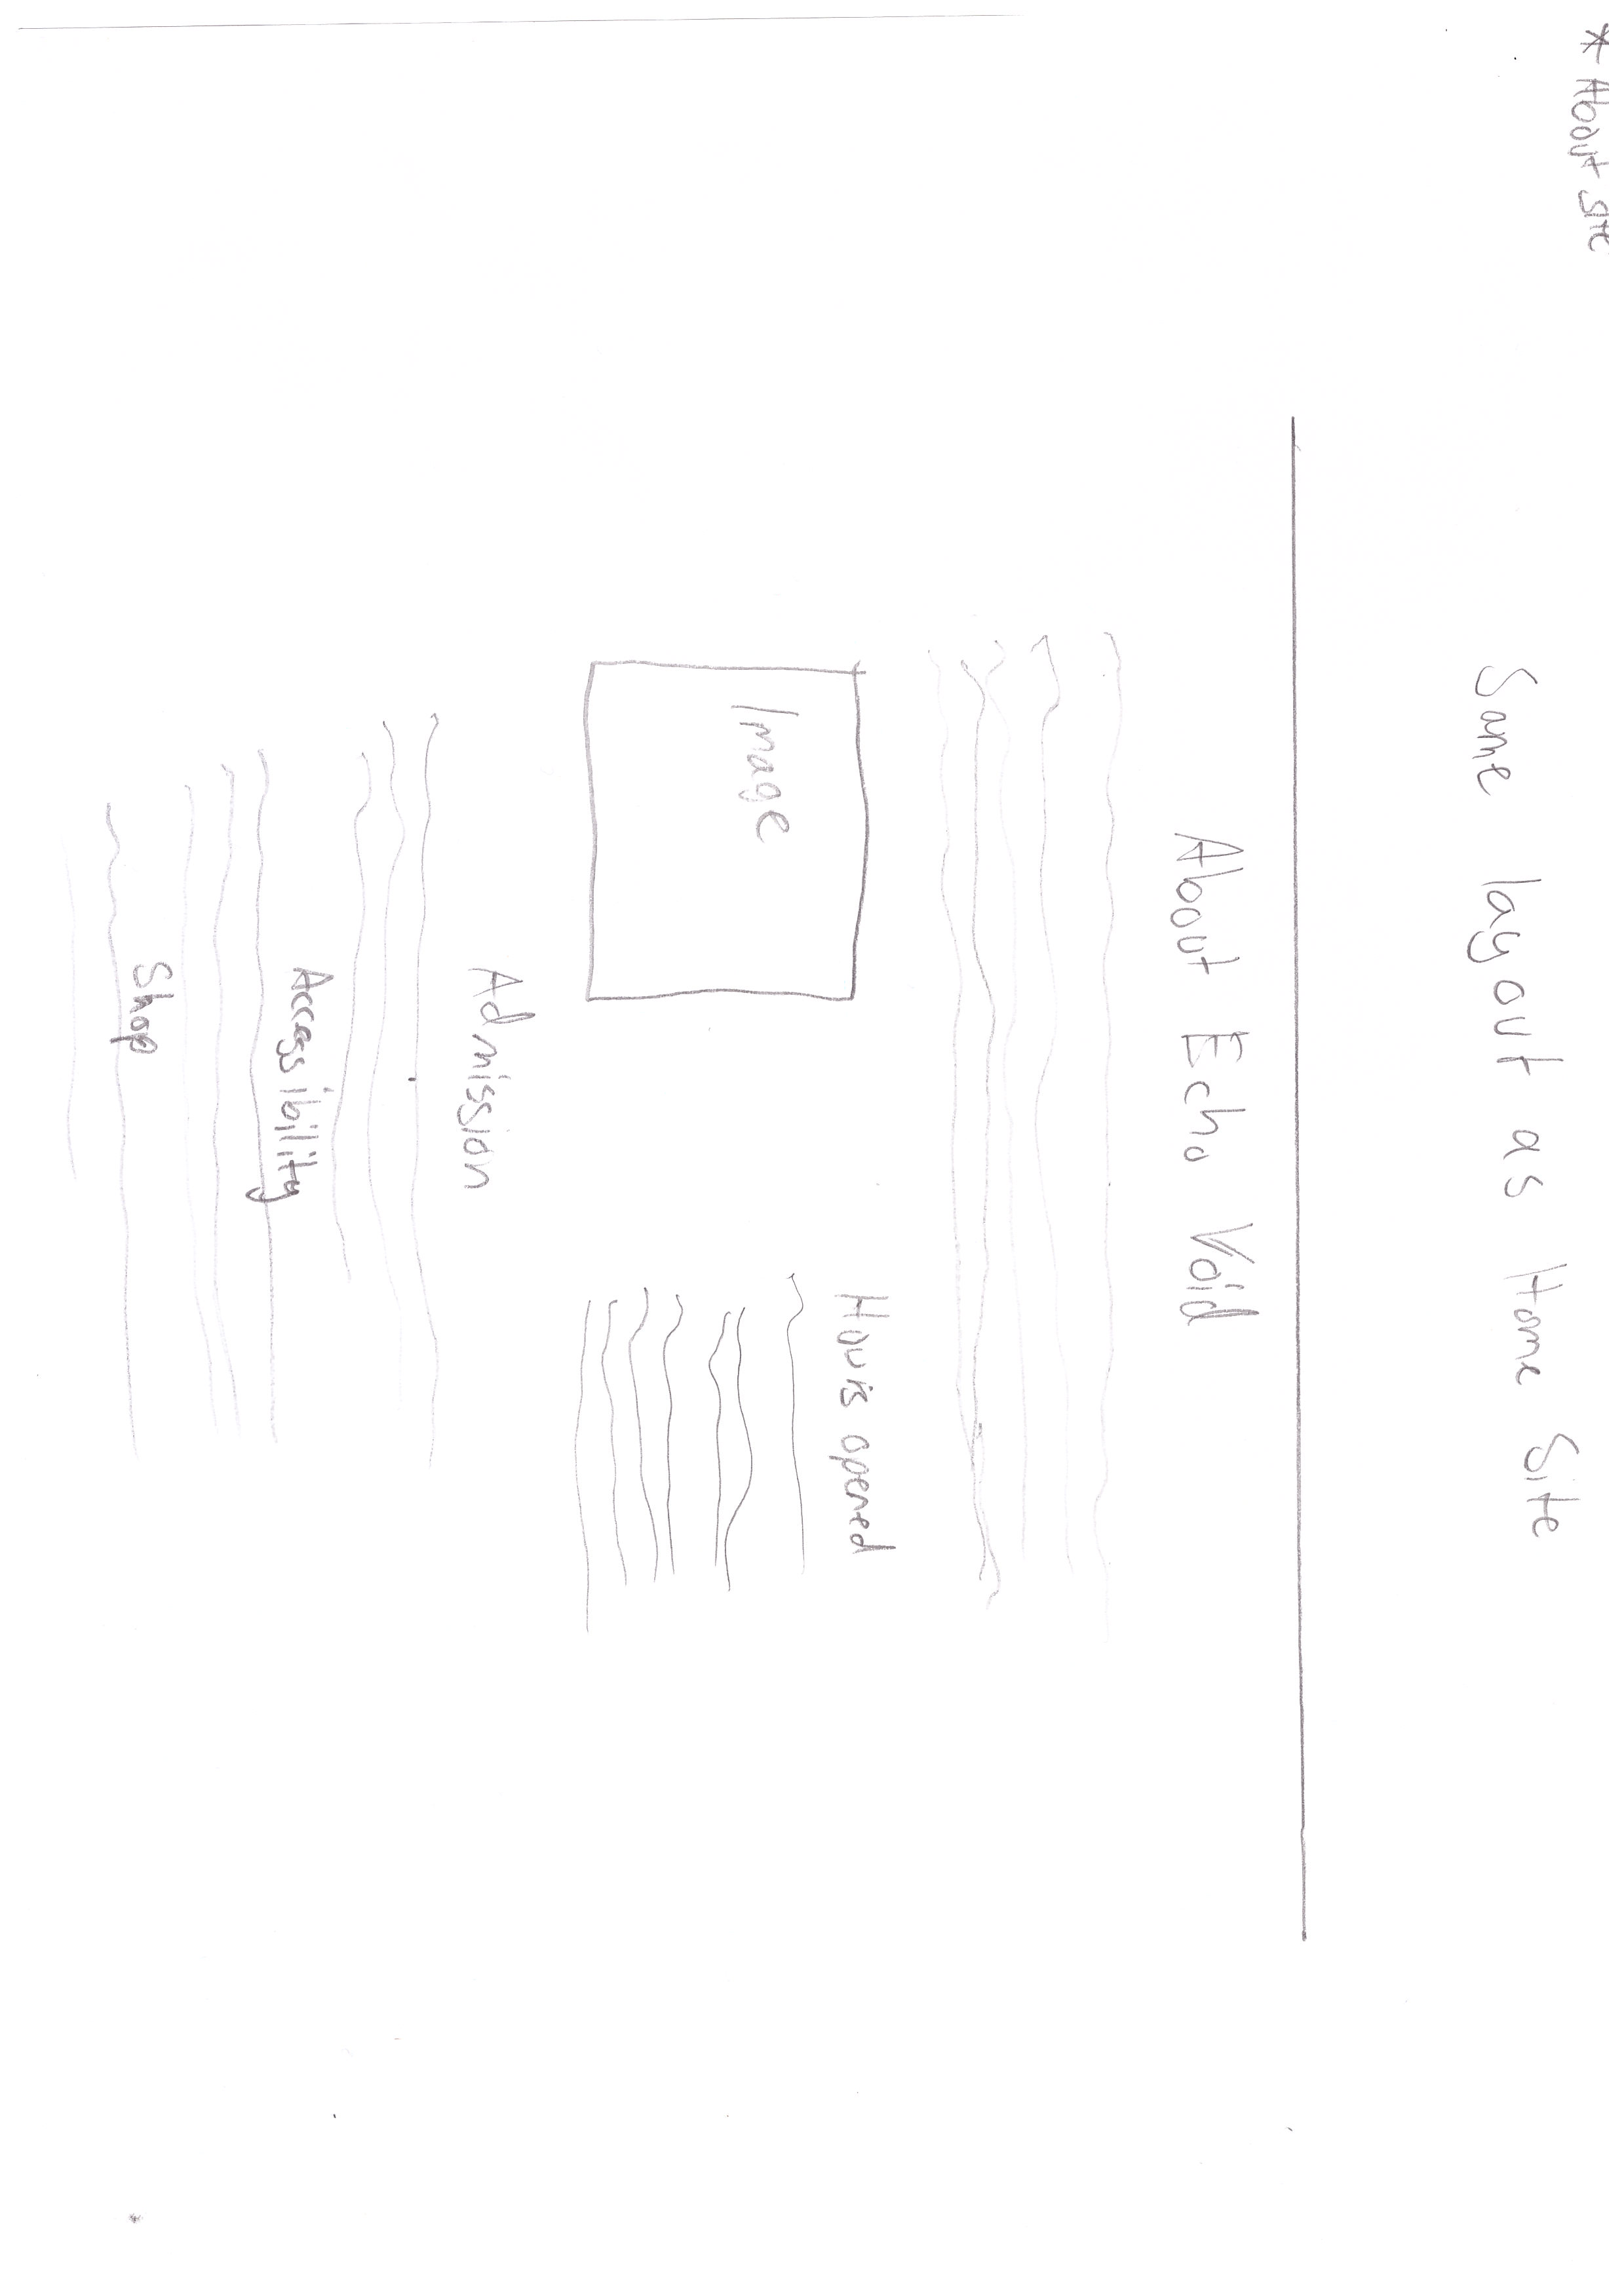 * About site
Same layout as Home Site
About Echo Void
Image
Hours opened
Admission
Accessibility
Shop